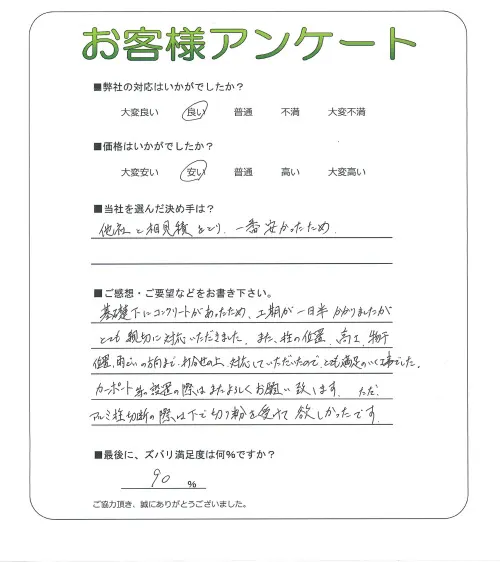 お客様アンケート
■弊社の対応はいかがでしたか？
大変良い 良い 普通 不満 大変不満
■価格はいかがでしたか？
大変安い 安い 普通 高い 大変高い
■当社を選んだ決め手は？
他社と相見積をとり、一番安かったため、
■ご感想・ご要望などをお書き下さい。
基礎下にコンクリートがあったため、工期が一日半かかりましたが
とても親切に対応いただきました。また、柱の位置、高さ、物干
位置、雨どいの方向まで、打合せの上、対応していただいたので、とても満足のいく工事でした。
カーポート等設置の際はまたよろしくお願い致します。ただ、
アルミ柱切断の際は下で切り粉を受けて欲しかったです。
■最後に、ズバリ満足度は何％ですか？
90 ％
ご協力頂き、誠にありがとうございました。